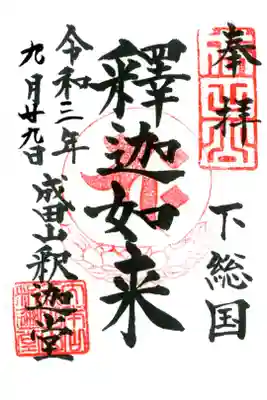 奉拝
下総国
釋迦如来
令和三年
九月廿九日
成田山釈迦堂